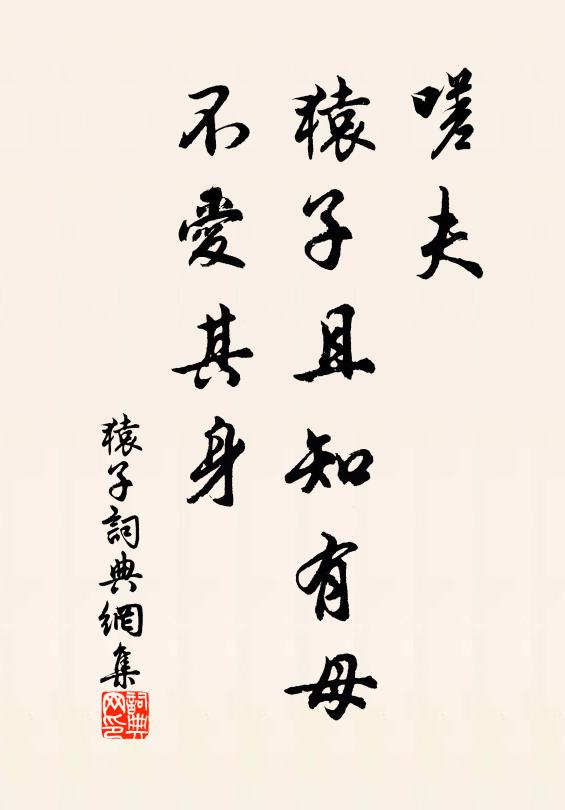 嗟夫
猿子且知有母
不愛其身
猿子詞典網集
詞典网印